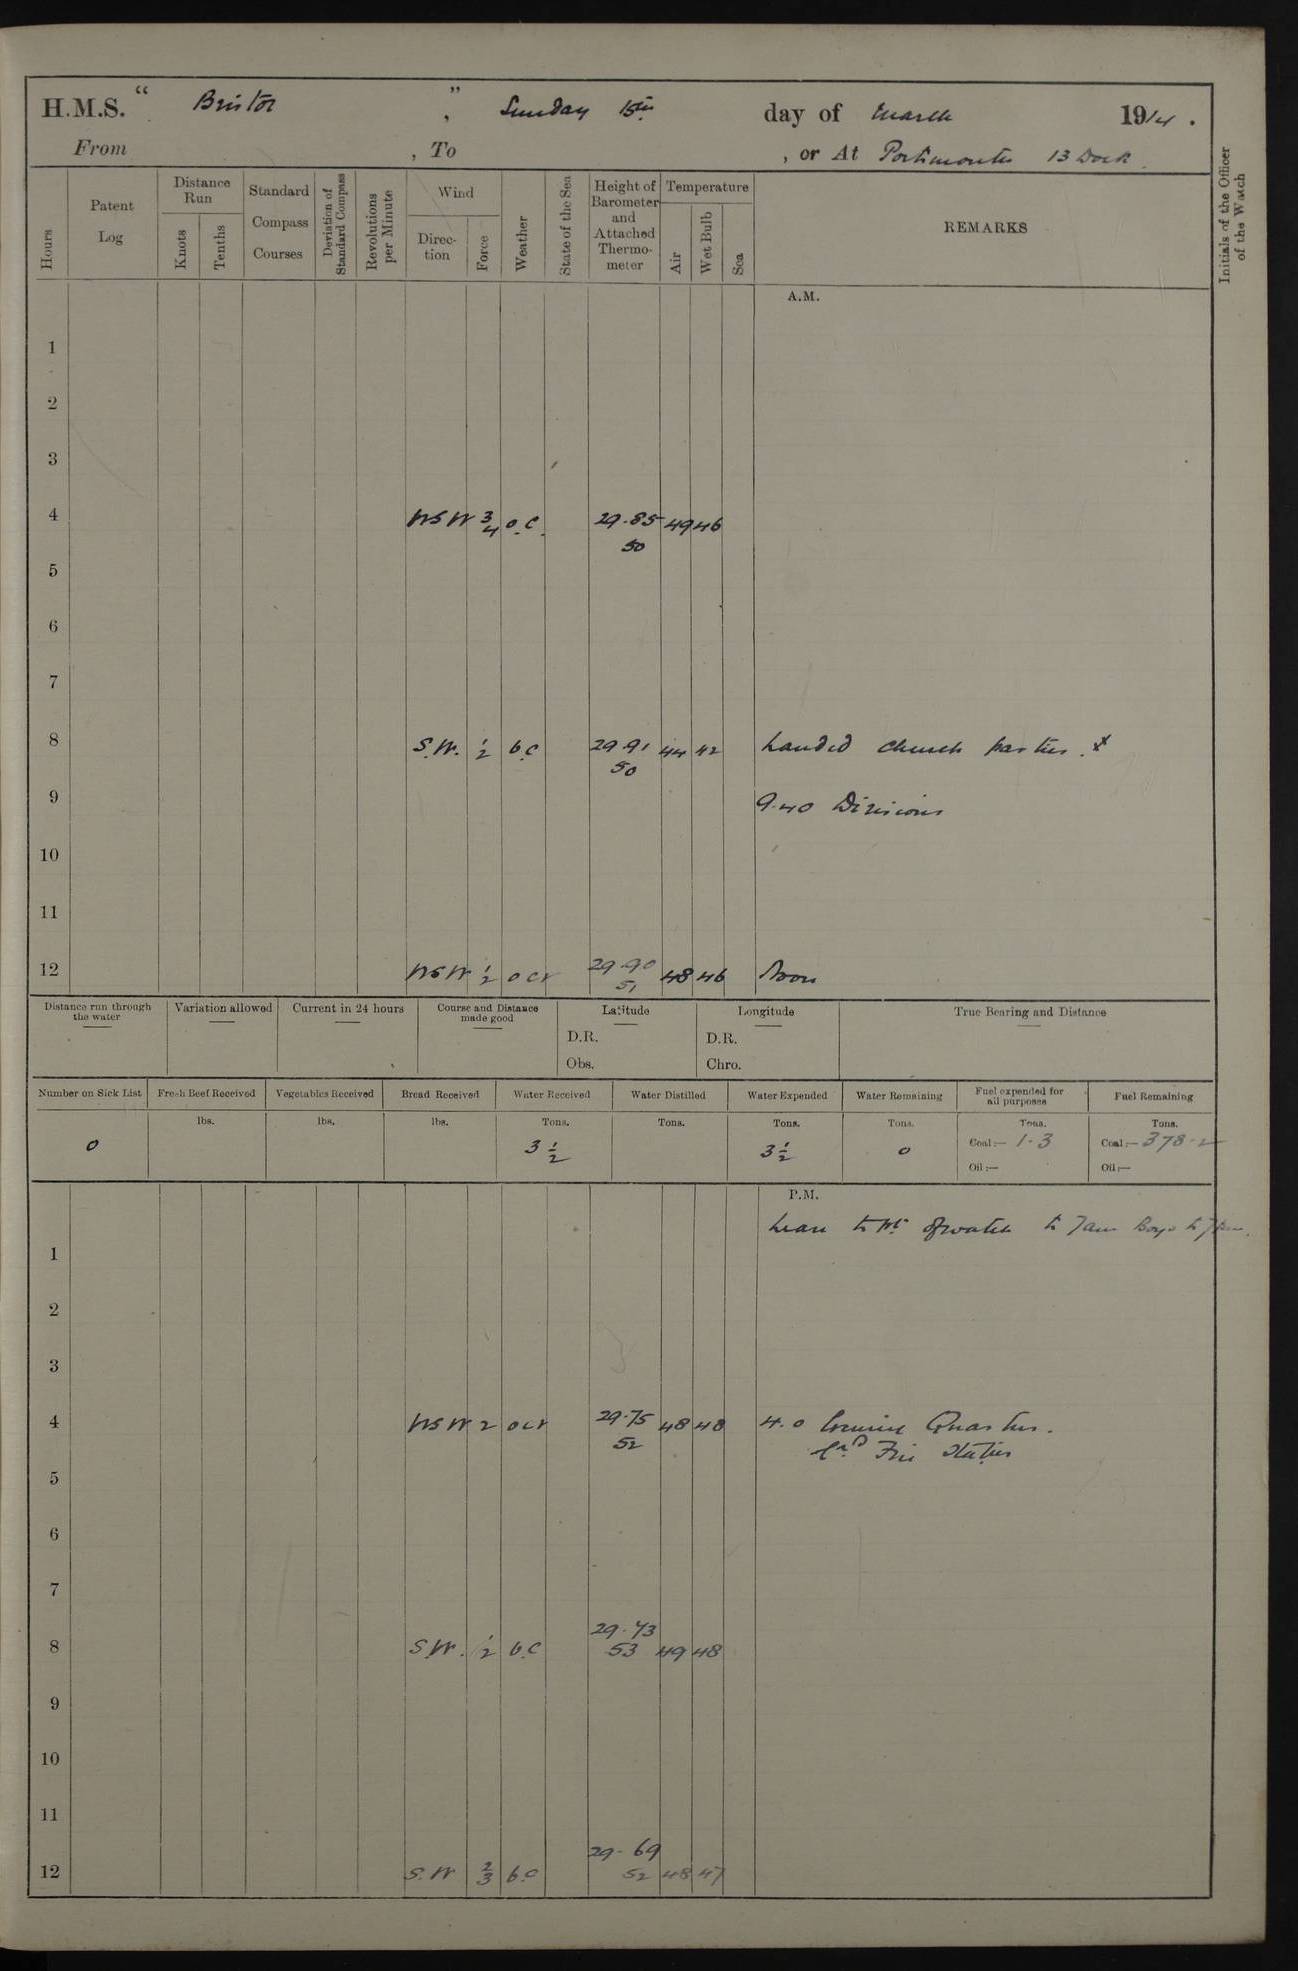 H.M.S. " Bristol " , Sunday 15th day of March 1914 .
From , To , or At Portsmouth 13 Dock
Hours Patent Log Distance Run Knots Tenths Standard Compass Courses Deviation of Standard Compass Revolutions per Minute Wind Direc-tion Force Weather State of the Sea Height of Barometer and Attached Thermo-meter Temperature Air Wet Bulb Sea REMARKS Initials of the Officer of the Watch
A.M.
1
2
3
4 WSW 3/4 o.c. 29.85 49 46
50
5
6
7
8 S.W. 1/2 b.c 29.91 44 42 Landed church parties. x
50
9 9.40 Divisions
10
11
12 WSW 1/2 ocr 29.90 48 46 Noon
51
Distance run through the water Variation allowed Current in 24 hours Course and Distance made good Latitude Longitude True Bearing and Distance
D.R. D.R.
Obs. Chro.
Number on Sick List Fresh Beef Received Vegetables Received Bread Received Water Received Water Distilled Water Expended Water Remaining Fuel expended for all purposes Fuel Remaining
lbs. lbs. lbs. Tons. Tons. Tons. Tons. Tons. Tons.
0 3 1/2 3 1/2 0 Coal:— 1.3 Coal:— 378.2
Oil:— Oil:—
P.M.
Leave to pt of watch to 7am Boys to 7pm.
1
2
3
4 WSW 2 ocr 29.75 48 48 4.0 Evening Quarters.
52 Exd Fire Stations
5
6
7
29.73
8 S.W. 1/2 b.c 53 49 48
9
10
11
29.69
12 S.W 2/3 b.c 52 48 47